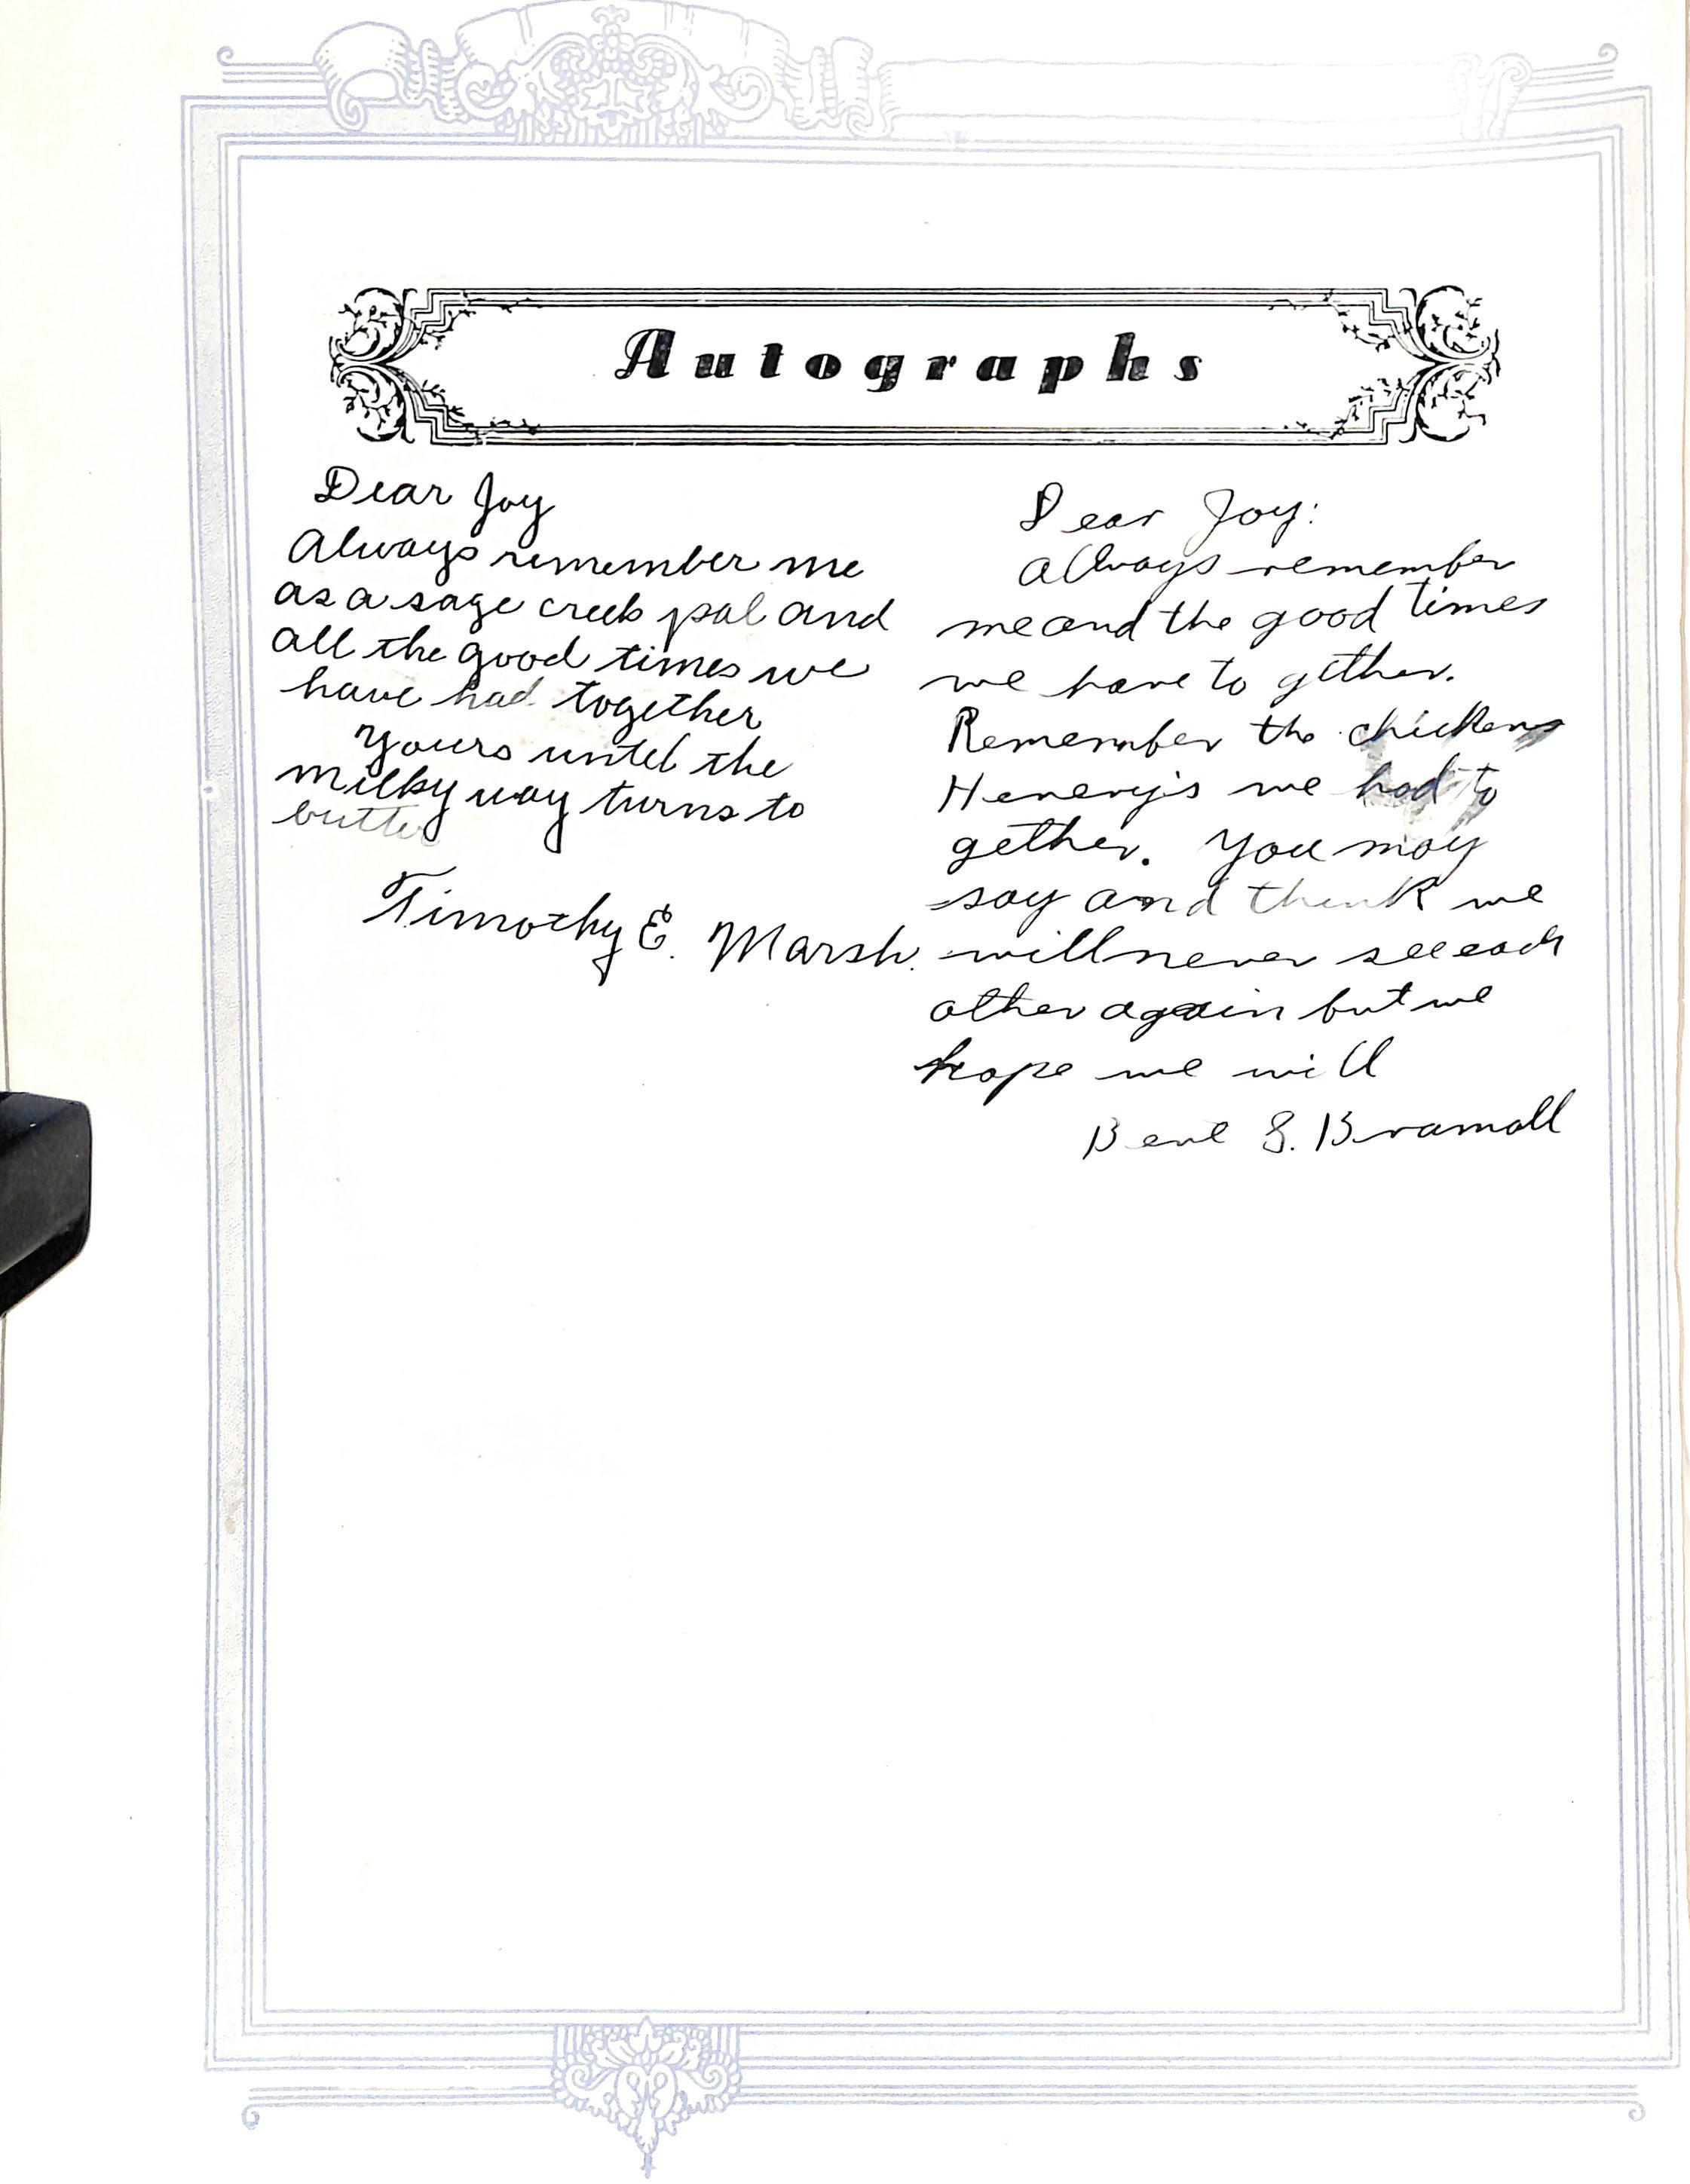 Autographs
Dear Joy
Always remember me
as a sage creek pal and
all the good times we
have had together
Yours until the
milky way turns to
butter
Timothy E. Marsh.
Dear Joy:
Always remember
me and the good times
we have to gether.
Remember the chickens
Henery's we had to
gether. You may
say and think we
will never see each
other again but we
hope we will
S. Bramall